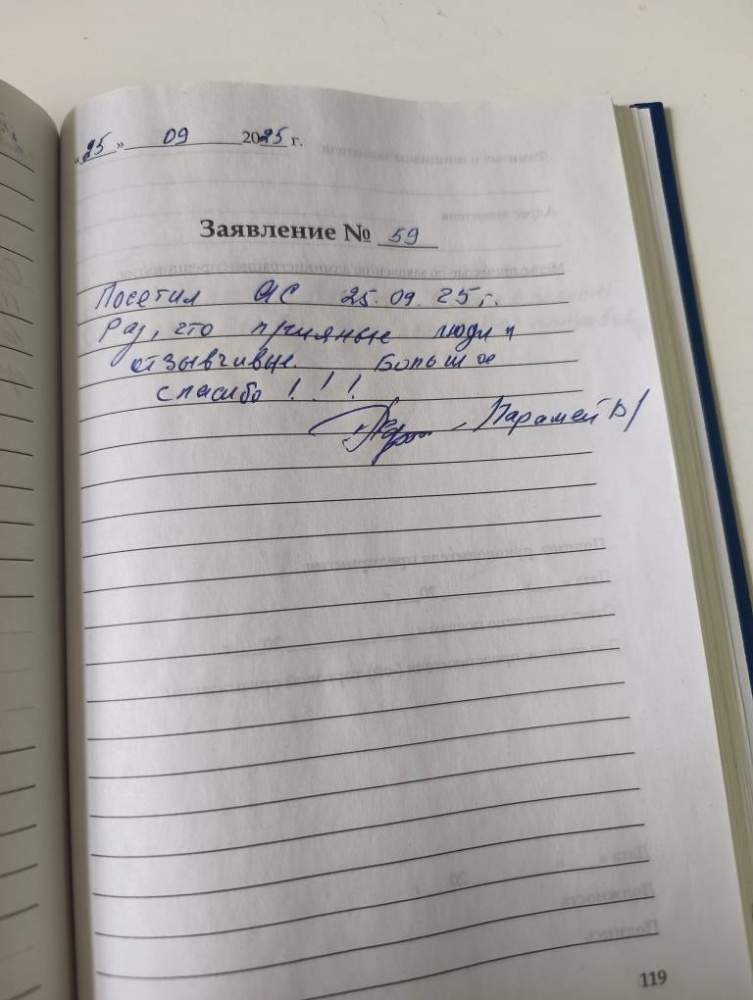 «25» 09 2025 г.
Заявление № 59
Посетил ЯС 25.09.25г.
Рад, что приянные люди и
отзывчивые. Большое
спасибо!!!
Парамей В/
119